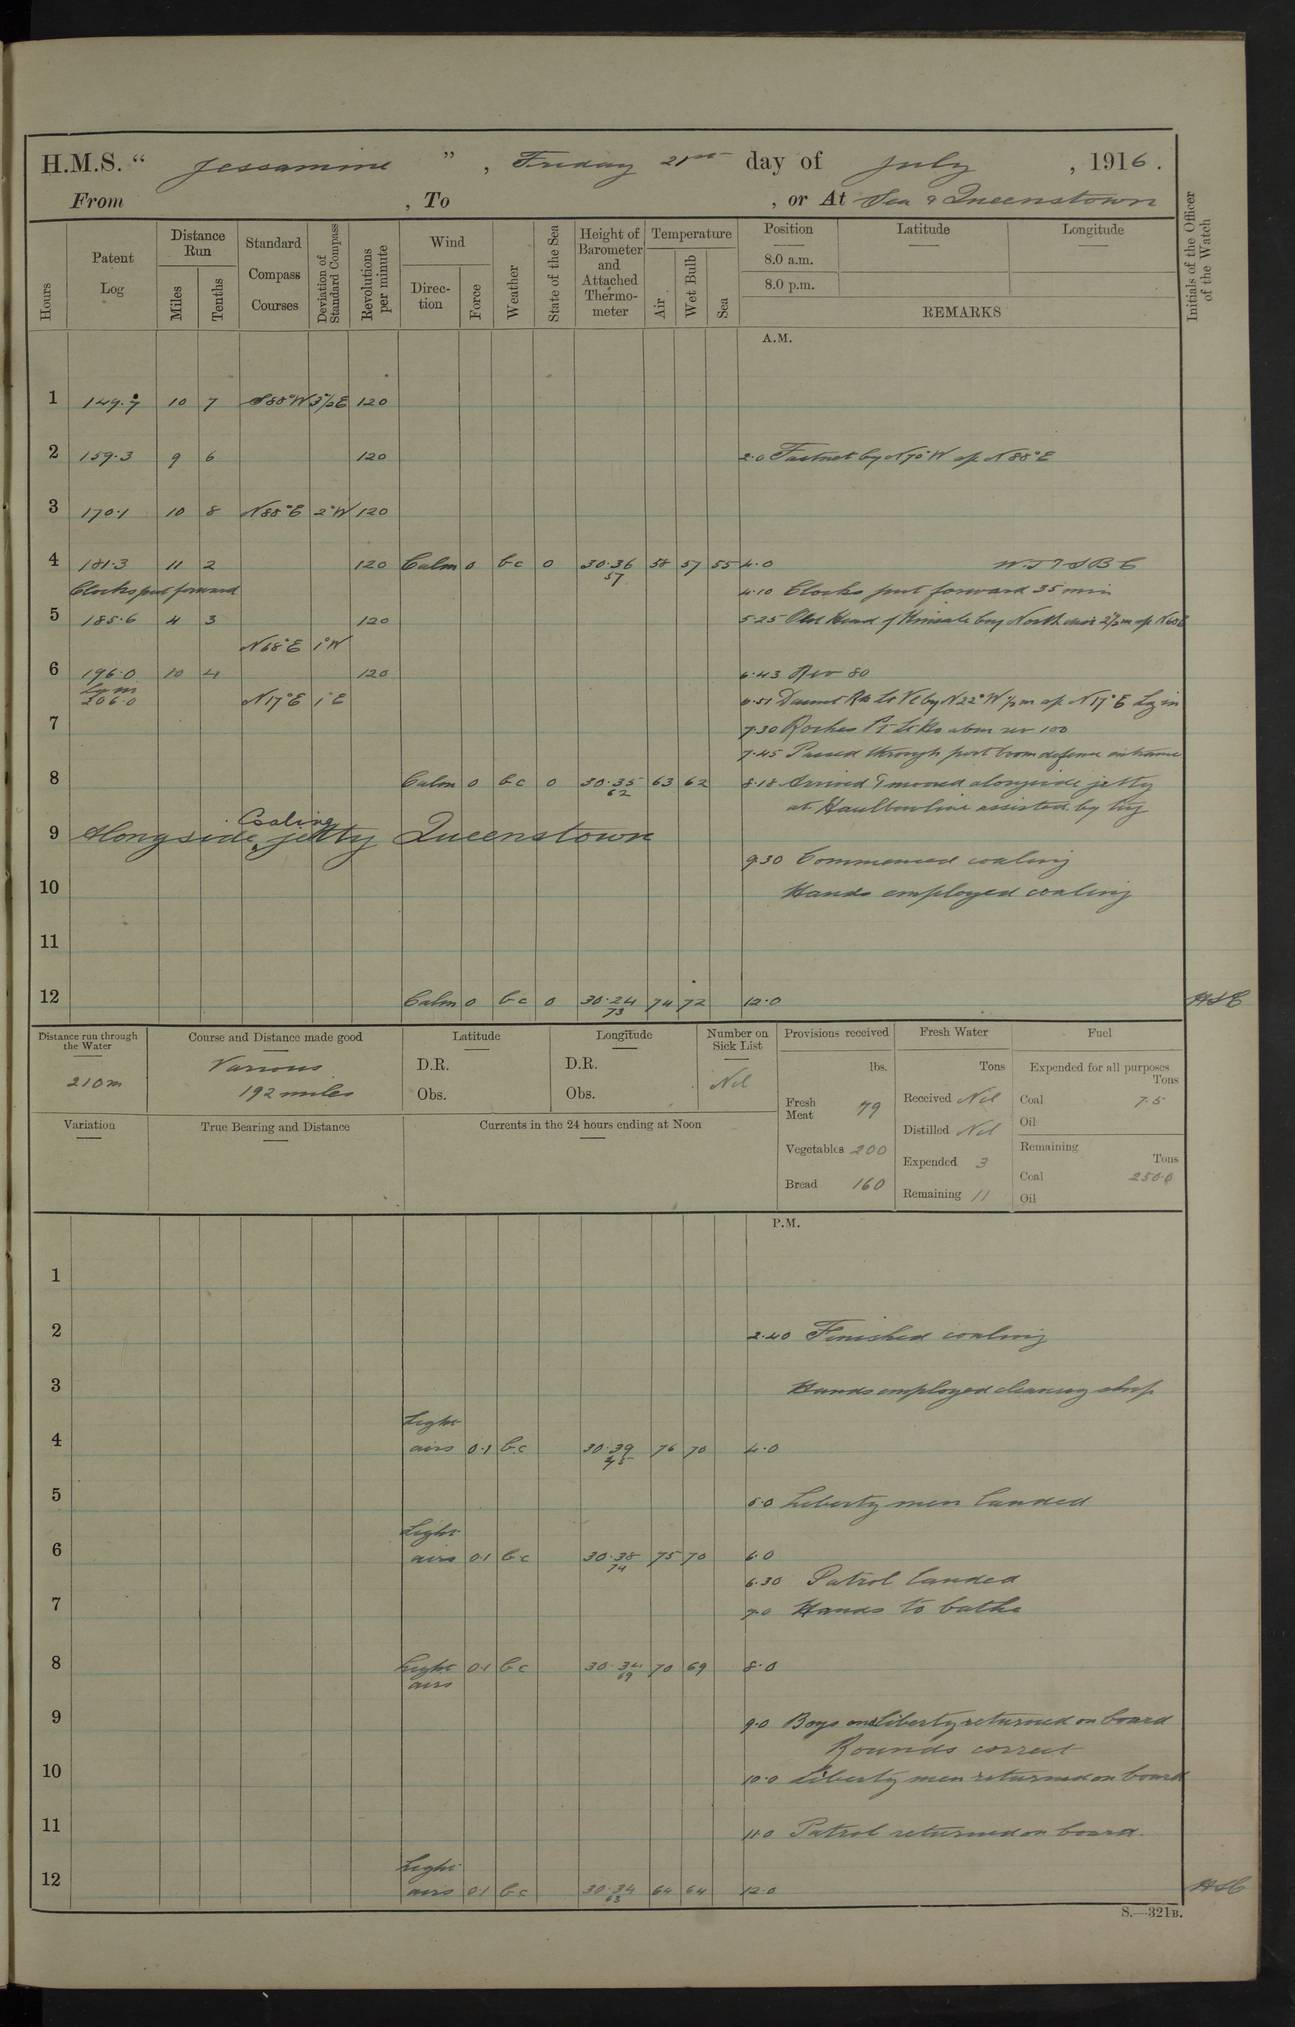 H.M.S. “ Jessamine ” , Friday 21st day of July , 1916 .
From , To , or At Sea & Queenstown
Hours
Patent Log
Distance Run
Miles
Tenths
Standard Compass Courses
Deviation of Standard Compass
Revolutions per minute
Wind
Direction
Force
Weather
State of the Sea
Height of Barometer and Attached Thermometer
Temperature
Air
Wet Bulb
Sea
Position
8.0 a.m.
8.0 p.m.
Latitude
Longitude
REMARKS
Initials of the Officer of the Watch
A.M.
1 149.7 10 7 S88°W 3½E 120
2 159.3 9 6 120 2.0 Fastnet by N70°W a/c N88°E
3 170.1 10 8 N88°E 2°W 120
4 181.3 11 2 120 Calm 0 bc 0 30.36 57 58 57 55 4.0
Clocks put forward 4.10 Clocks put forward 35 min
5 185.6 4 3 120 5.25 Old Head of Kinsale brg North dist 2½m a/c N68E
N68°E 1°W
6 196.0 10 4 120 6.43 Rev 80
206.0 N17°E 1°E 6.51 Daunt Rk Lt Vl by N22°W ½m a/c N17°E Log in
7 7.30 Roches Pt abm rev 100
7.45 Passed through port boom defence entrance
8 Calm 0 bc 0 30.35 62 63 62 8.18 Arrived & moored alongside jetty
at Haulbowline assisted by tug
9 Alongside Coaling jetty Queenstown
9.30 Commenced coaling
10 Hands employed coaling
11
12 Calm 0 bc 0 30.24 73 74 72 12.0
Distance run through the Water
210m
Course and Distance made good
Various
192 miles
Latitude
D.R.
Obs.
Longitude
D.R.
Obs.
Number on Sick List
Nil
Provisions received
lbs.
Fresh Meat 79
Vegetables 200
Bread 160
Fresh Water
Tons
Received Nil
Distilled Nil
Expended 3
Remaining 11
Fuel
Expended for all purposes
Tons
Coal 7.5
Oil
Remaining
Tons
Coal 250.0
Oil
Variation
True Bearing and Distance
Currents in the 24 hours ending at Noon
P.M.
1
2 2.40 Finished coaling
3 Hands employed cleaning ship
4 Light airs 0.1 bc 30.39 75 76 70 4.0
5 5.0 Liberty men landed
6 Light airs 0.1 bc 30.38 74 75 70 6.0
6.30 Patrol landed
7 7.0 Hands to bathe
8 Light airs 0.1 bc 30.34 69 70 69 8.0
9 9.0 Boys on liberty returned on board
Rounds correct
10 10.0 Liberty men returned on board
11 11.0 Patrol returned on board.
12 Light airs 0.1 bc 30.34 63 64 64 12.0
S.—321B.